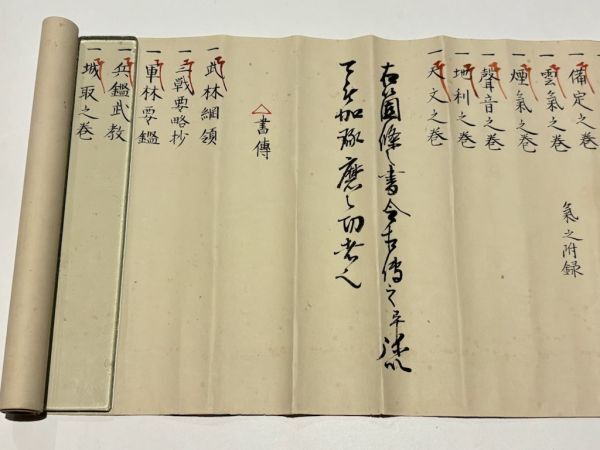 一備定之巻
氣之附録
一雲氣之巻
一煙氣之巻
一聲音之巻
一地利之巻
一天文之巻
右箇條之書今古傳之
可加琢磨之切者也
△書傳
一武林綱領
一三戰要略抄
一軍林零鑑
一兵鑑武教
一城取之巻